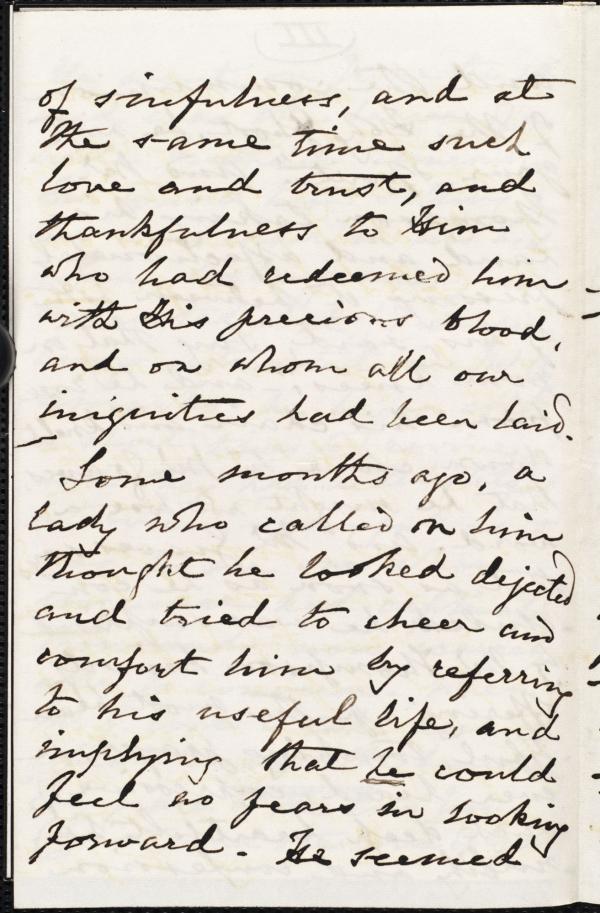 of sinfulness, and at
the same time such
love and trust, and
thankfulness to Him
who had redeemed him
with His precious blood,
and on whom all our
iniquities had been laid.
Some months ago, a
lady who called on him
thought he looked dejected
and tried to cheer and
comfort him by referring
to his useful life, and
implying that he could
feel no fears in looking
forward. He seemed